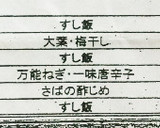 すし飯
大葉・梅干し
すし飯
万能ねぎ・一味唐辛子
さばの酢じめ
すし飯